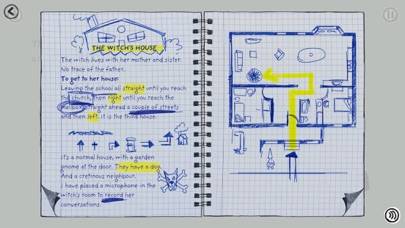 THE WITCH'S HOUSE
The witch lives with her mother and sister.
No trace of the father.
To get to her house:
Leaving the school all straight until you reach
the church, then right until you reach the
straight ahead a couple of streets
and then left. It is the third house.
It's a normal house, with a garden
gnome at the door. They have a dog.
And a cretinous neighbour.
I have placed a microphone in the
witch's room to record her
conversations.